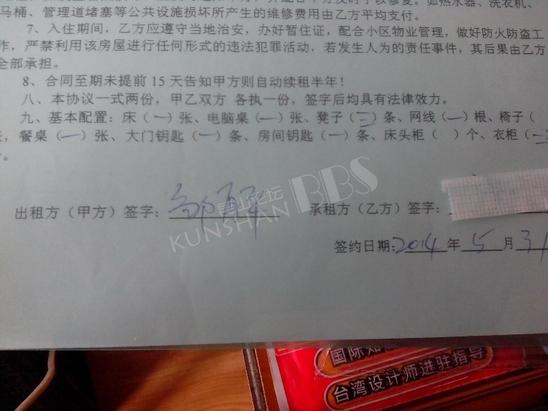 马桶、管道堵塞等公共设施损坏所产生的维修费用由乙方平均支付。
7、入住期间，乙方应遵守当地治安，办好暂住证，配合小区物业管理，做好防火防盗工
作，严禁利用该房屋进行任何形式的违法犯罪活动，若发生人为的责任事件，其后果由乙方
全部承担。
8、合同至期未提前 15 天告知甲方则自动续租半年！
八、本协议一式两份，甲乙双方 各执一份，签字后均具有法律效力。
九、基本配置：床（一）张、电脑桌（一）张、凳子（三）条、网线（一）根、椅子（
张，餐桌（一）张、大门钥匙（一）条、房间钥匙（一）条、床头柜（ ）个、衣柜（
出租方（甲方）签字： 承租方（乙方）签字：
KUNSHAN BBS
签约日期:2014 年 5 月 31
国际知
台湾设计师进驻指导